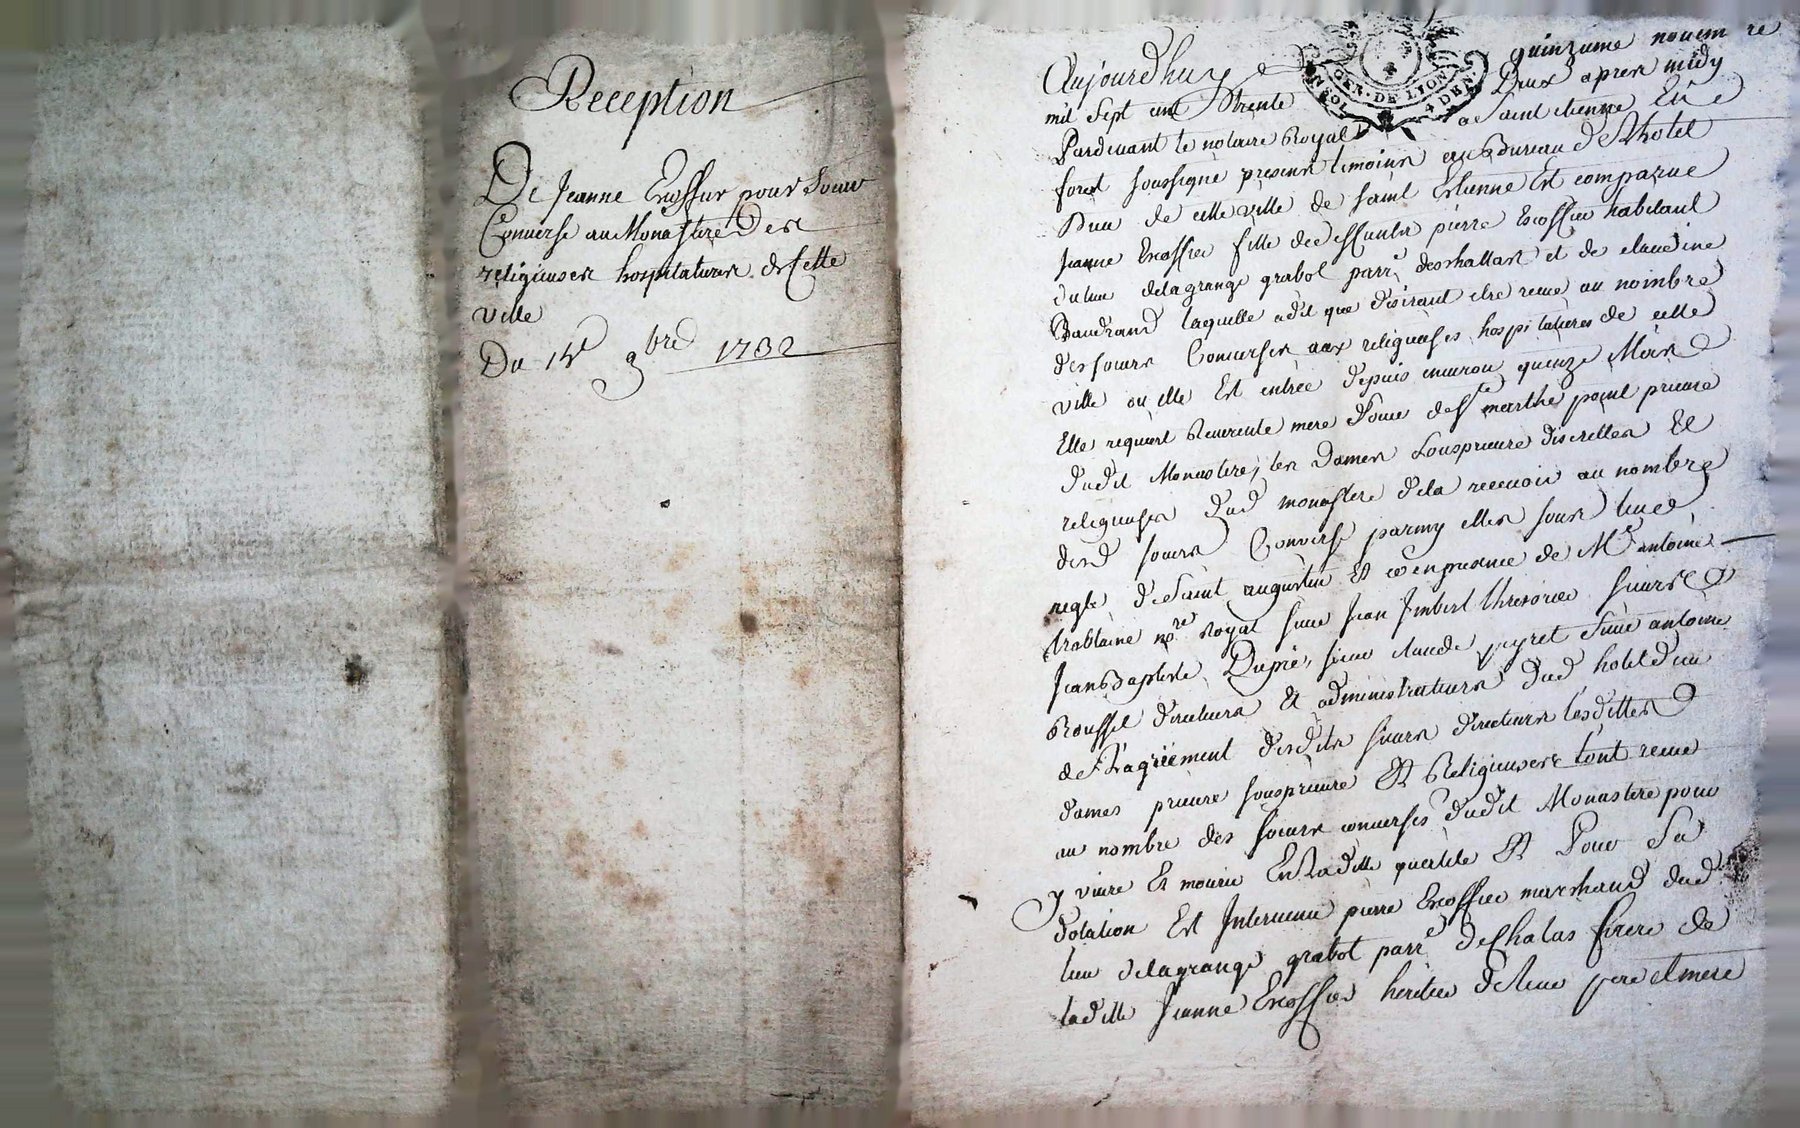 Reception
De Jeanne Excoffier pour Soeur
Converse au Monastere Des
religieuses hospitalieres de Cette
ville
Du 15e 9bre 1732
Aujourdhuy quinzieme novem re
mil sept cent Trente Deux apres midy
Pardevant le notaire Royal a Saint etienne En
forest soussigné presens temoins au Bureau de Lhotel
Dieu de cette ville de saint Estienne Est comparue
Jeanne Excoffier fille de deffunts pierre Excoffier habitant
du lieu delagrange grabot parr.e deschallas et de claudine
Baudrand laquelle a dit que desirant etre receue au nombre
des soeurs Converses aux religieuses hospitalieres de cette
ville ou elle Est entrée depuis environ quinze Mois
Elle requiert Reverente mere de Ste marthe prieure
dudit Monastere, les Dames Sousprieure discrettes Et
religieuses dud monastere dela recevoir au nombre
desd soeurs Converse parmy elles sous la
regle de Saint augustin Et en presence de Mre antoine
trablaine nre Royal sieur Jean Imbert thresorier sieurs
Jean Baptiste Dupré, sieur claude peyret Sieur antoine
Roussel directeurs Et administrateurs dud hotel dieu
de Lagriement desdits sieurs directeurs lesdittes
dames prieure sousprieure Et Religieuses lont receue
au nombre des soeurs converses dudit Monastere pour
y vivre Et mourir En Laditte qualite Et Pour Sa
dotation Est Intervenu pierre Excoffier marchand dud
lieu delagrange grabot parr.e deChalas frere de
laditte Jeanne Excoffier heritier de leur pere et mere
GEN. DE LYON